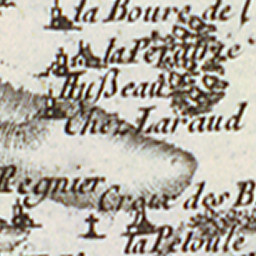 la Boure de l
la Perarze
Hußeau
Chez Laraud
Regnier
Croix des B
la Peloule